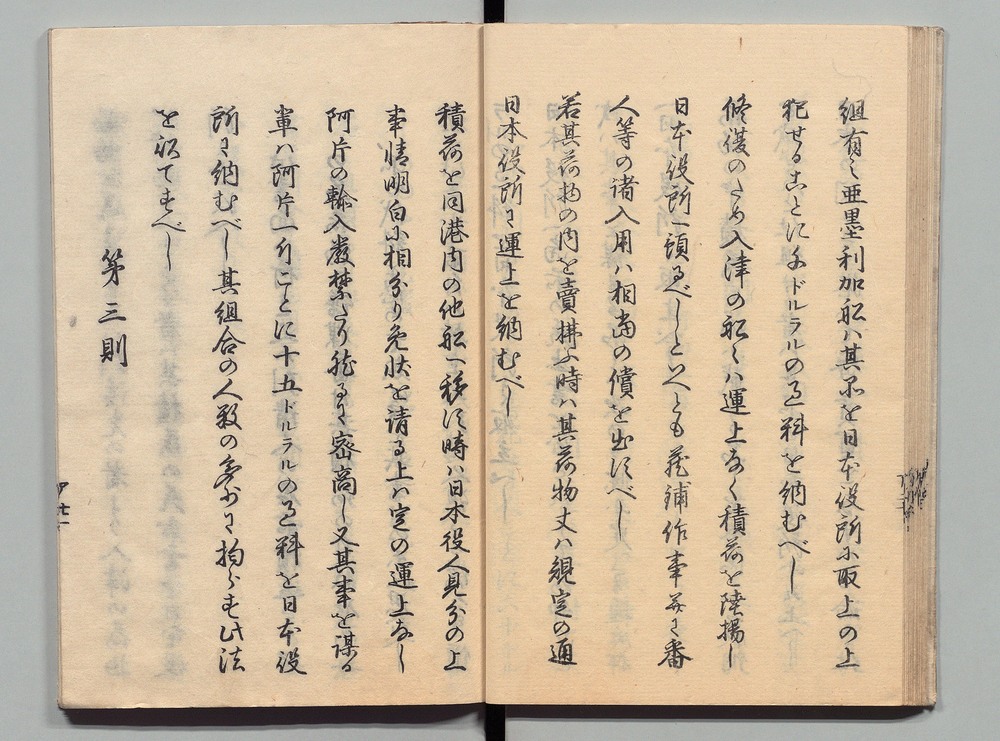 組有之亜墨利加船ハ其品を日本役所に取上の上
犯せることに千ドルラルの過料を納むべし
修復のため入津の船ハ運上なく積荷を陸揚し
日本役所へ預るべしといへとも蔵鋪作事并に番
人等の諸入用ハ相当の償を出すべし
若其荷物の内を賣拂ふ時ハ其荷物丈ハ規定の通
日本役所に運上を納むべし
積荷を同港内の他船へ移す時ハ日本役人見分の上
事情明白に相分り免状を請る上ハ定の運上なし
阿片の輸入厳禁たり然るに密商し又其事を謀る
輩ハ阿片一斤ごとに十五ドルラルの過料を日本役
所に納むべし其組合の人数の多少に拘らす此法
を以てすべし
第三則